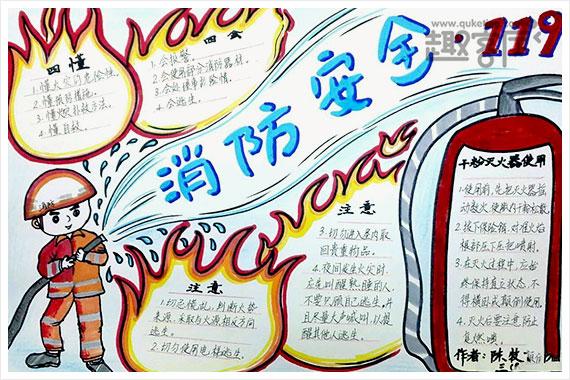 消防安全·119
四懂
1.懂火灾的危险性。
2.懂预防措施。
3.懂火灾扑救方法。
4.懂自救。
四会
1.会报警。
2.会使用部分消防器材。
3.会处理事故险情。
4.会逃生。
注意
1.切忌慌乱，判断火势
来源，采取与火源相反方向
逃生。
2.切勿使用电梯逃生。
注意
3.切勿进入室内取
回贵重物品。
4.夜间发生火灾时，
应先叫醒熟睡的人，
不要只顾自己逃生，并
且尽量大声喊叫，以提
醒其他人逃生。
干粉灭火器使用
1.使用前，先把灭火器摇
动数次，使瓶内干粉松散。
2.拔下保险销，对准火焰
根部压下压把喷射。
3.在灭火过程中，应始
终保持直立状态，不
得横卧或颠倒使用。
4.灭火后要注意防止
复燃哦
作者：陈